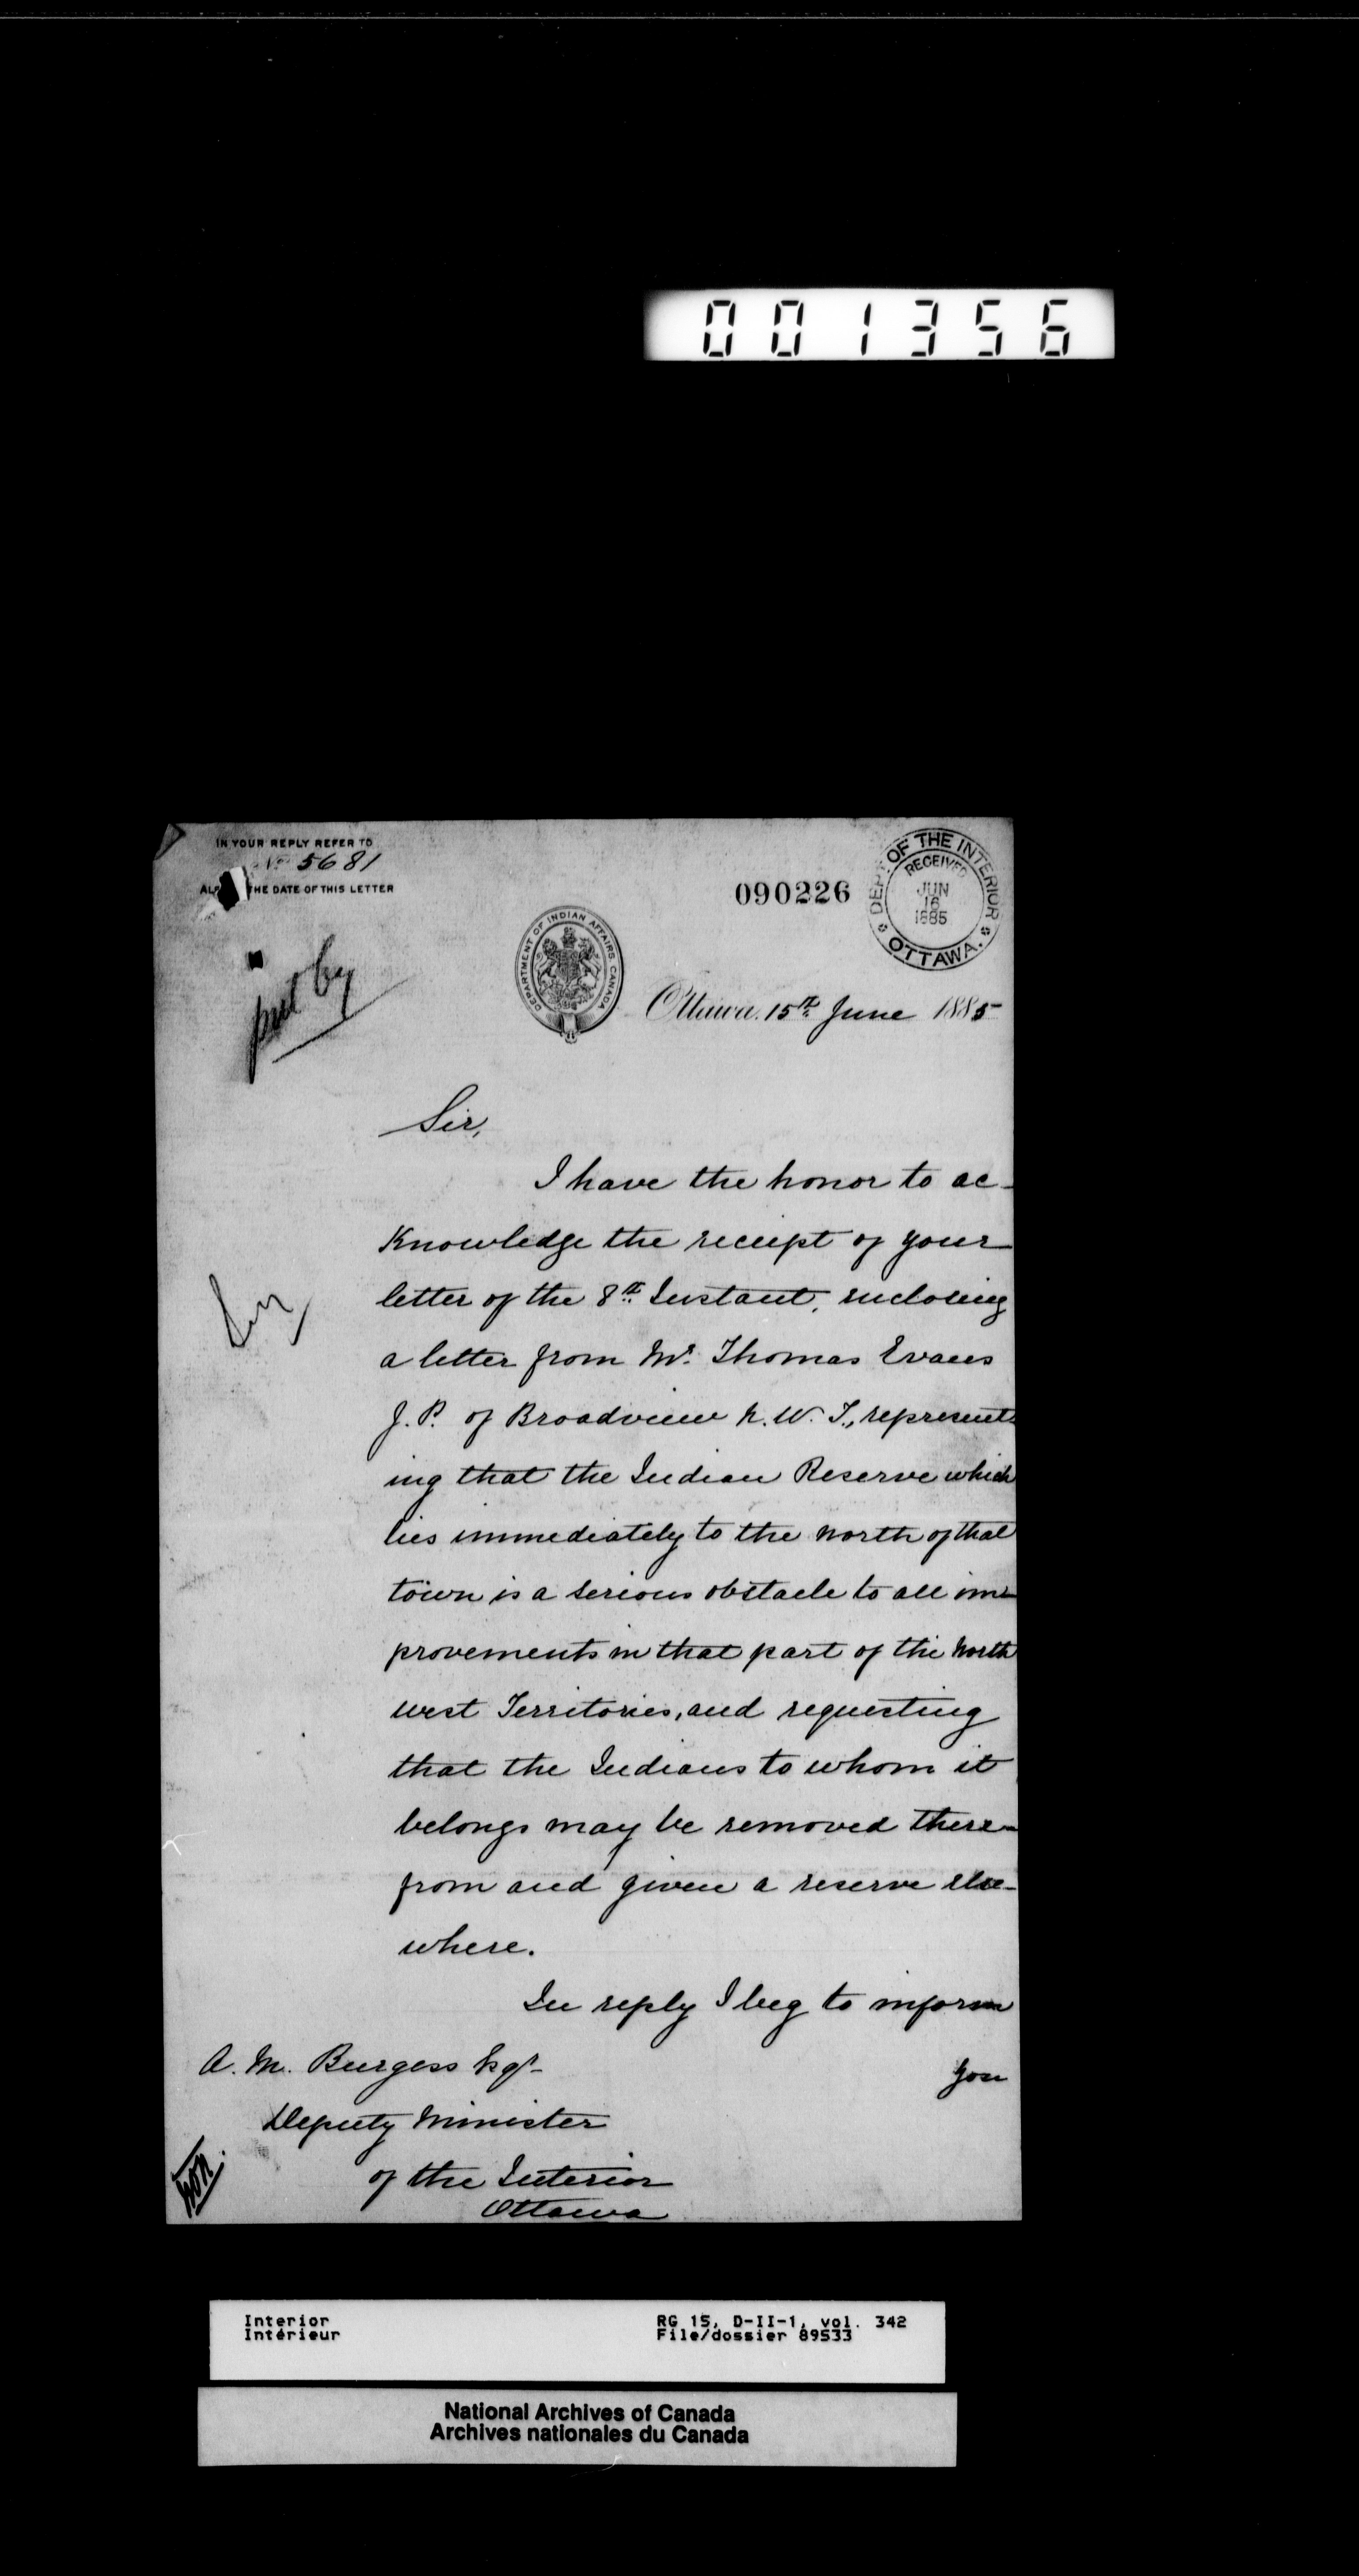 001356
IN YOUR REPLY REFER TO
No 5681
THE DATE OF THIS LETTER
090226
DEPT OF THE INTERIOR
RECEIVED
JUN
16
1885
OTTAWA.
put by
DEPARTMENT OF INDIAN AFFAIRS CANADA
Ottawa. 15th June 1885
Sir,
I have the honor to ac-
knowledge the receipt of your
letter of the 8th Instant, inclosing
a letter from Mr. Thomas Evans
J. P. of Broadview N. W. T., represent-
ing that the Indian Reserve which
lies immediately to the north of that
town is a serious obstacle to all im-
provements in that part of the North
west Territories, and requesting
that the Indians to whom it
belongs may be removed there-
from and given a reserve else-
where.
In reply I beg to inform
you
A. M. Burgess Esqr
Deputy Minister
of the Interior
Ottawa
Interior
Intérieur
RG 15, D-II-1, vol. 342
File/dossier 89533
National Archives of Canada
Archives nationales du Canada